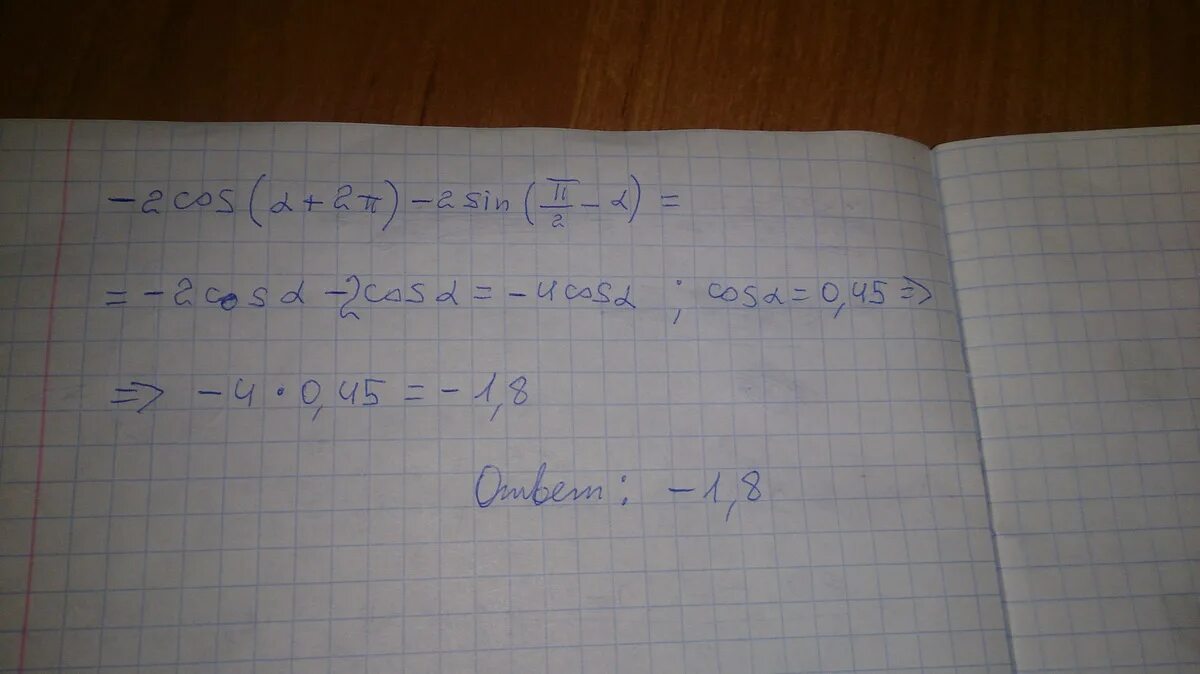 -2cos(α+2π)-2sin(π/2-α)=
=-2cosα-2cosα=-4cosα ; cosα=0,45=>
=> -4·0,45=-1,8
Ответ: -1,8